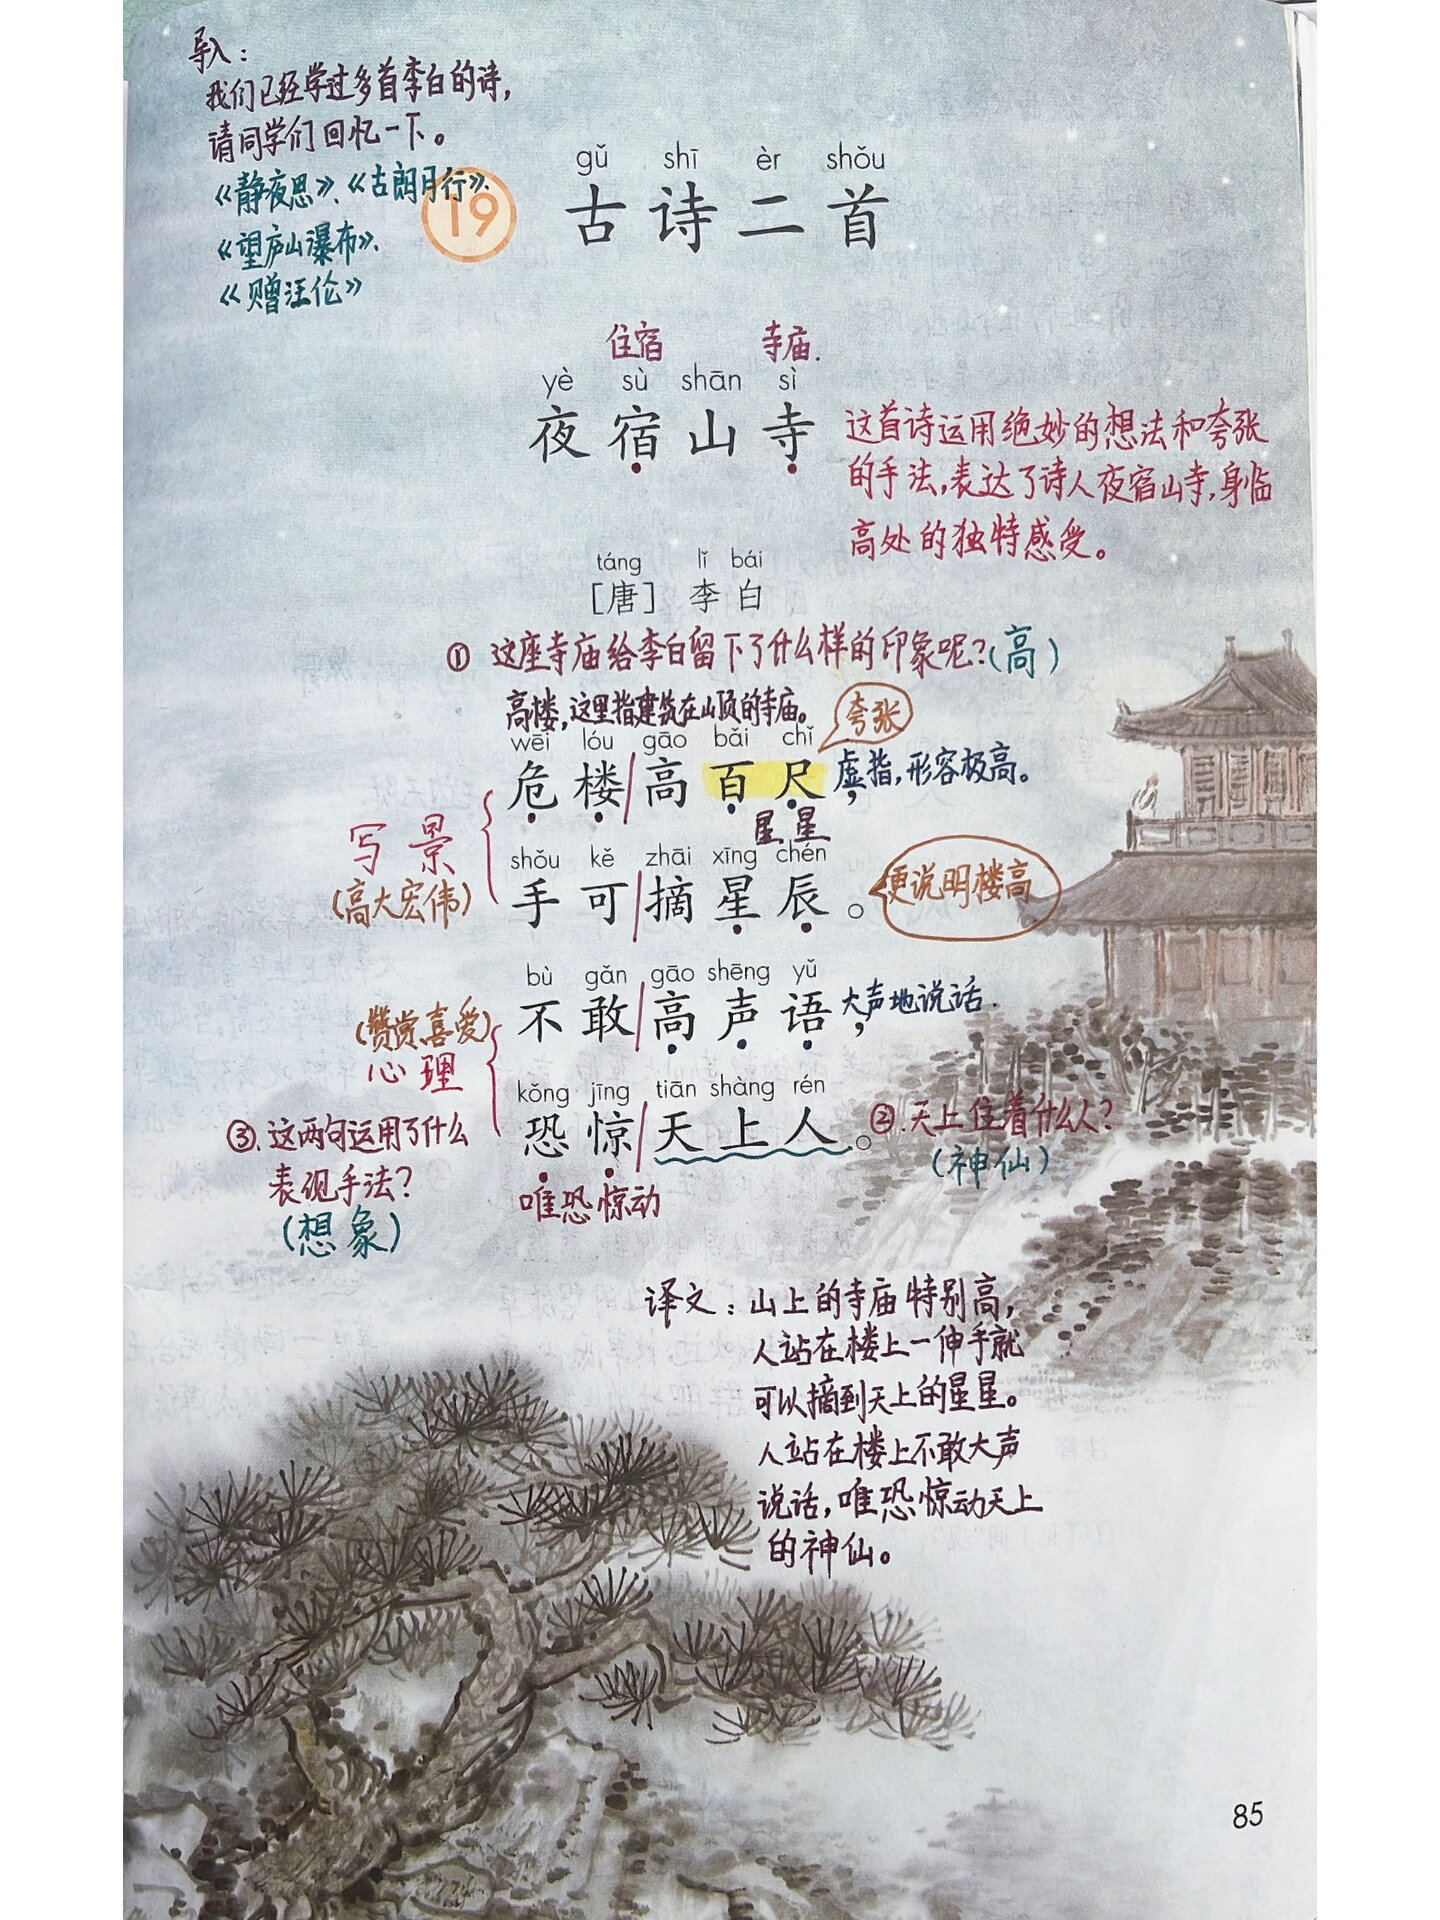 导入：
我们已经学过多首李白的诗，
请同学们回忆一下。
《静夜思》、《古朗月行》、
《望庐山瀑布》、
《赠汪伦》
19
gǔ shī èr shǒu
古诗二首
住宿 寺庙.
yè sù shān sì
夜宿山寺
这首诗运用绝妙的想法和夸张
的手法,表达了诗人夜宿山寺,身临
高处的独特感受。
táng lǐ bái
［唐］ 李白
① 这座寺庙给李白留下了什么样的印象呢?(高)
高楼,这里指建筑在山顶的寺庙。
夸张
wēi lóu gāo bǎi chǐ
危楼高百尺，
虚指,形容极高。
星星
写景
(高大宏伟)
shǒu kě zhāi xīng chén
手可摘星辰。
更说明楼高
bù gǎn gāo shēng yǔ
不敢高声语，
大声地说话.
(赞赏、喜爱)
心理
kǒng jīng tiān shàng rén
恐惊天上人。
唯恐 惊动
②.天上住着什么人?
(神仙)
③.这两句运用了什么
表现手法?
(想象)
译文：山上的寺庙特别高,
人站在楼上一伸手就
可以摘到天上的星星。
人站在楼上不敢大声
说话,唯恐惊动天上
的神仙。
85